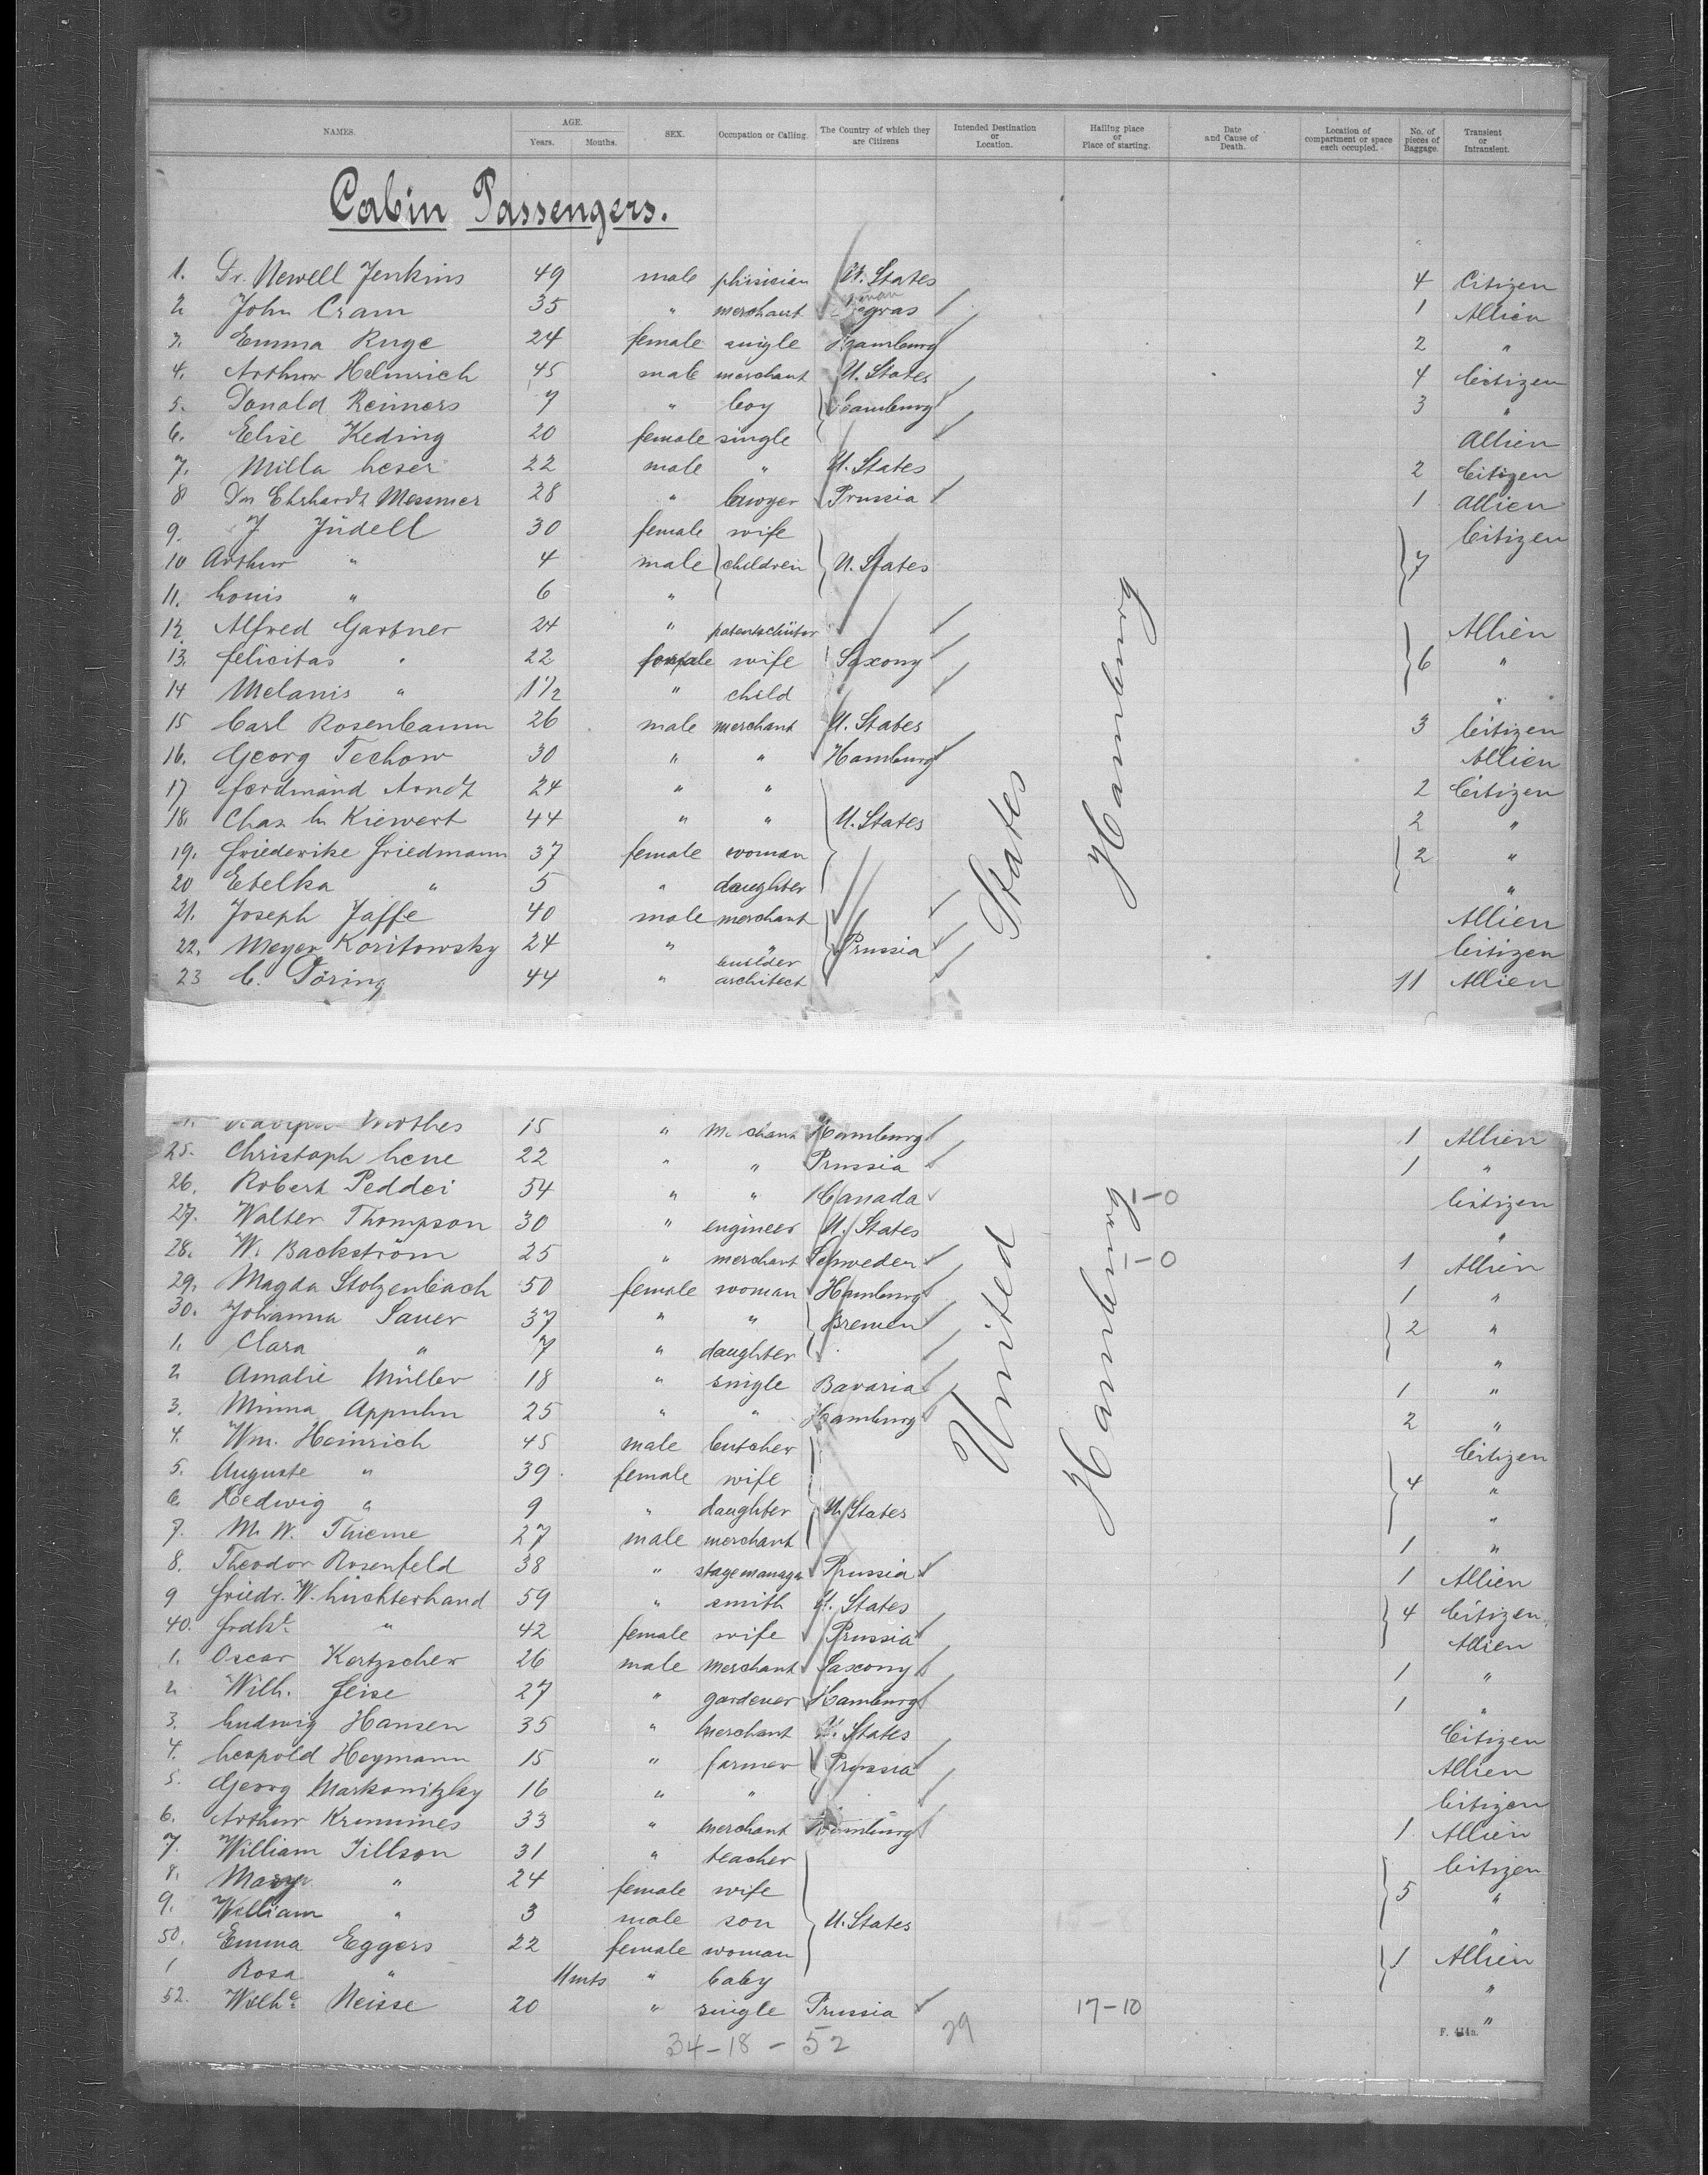 NAMES. AGE. Years. Months. SEX. Occupation or Calling. The Country of which they are Citizens Intended Destination or Location. Hailing place or Place of starting. Date and Cause of Death. Location of compartment or space each occupied. No. of pieces of Baggage. Transient or Intransient.
Cabin Passengers.
1. Dr. Newell Jenkins 49 male phisician U. States 4 Citizen
2 John Cram 35 " merchant 1 Allien
3. Emma Ruge 24 female single Hamburg 2 "
4. Arthur Heinrich 45 male merchant U. States 4 Citizen
5. Donald Reimers 7 " boy Hamburg 3 "
6. Elise Keding 20 female single Allien
7. Milla Leser 22 male " U. States 2 Citizen
8 Dr. Ehrhardt Messmer 28 " lawyer Prussia 1 Allien
9. J Jüdell 30 female wife Citizen
10 Arthur " 4 male children U. States 7
11. Louis " 6 "
12. Alfred Gartner 24 " Allien
13. Felicitas " 22 female wife Saxony 6 "
14 Melanis " 1 1/2 " child "
15 Carl Rosenbaum 26 male merchant U. States 3 Citizen
16. Georg Techow 30 " " Hamburg Allien
17 Ferdinand Arndt 24 " " 2 Citizen
18. Chas. L. Kiewert 44 " " U. States 2 "
19. Friederike Friedmann 37 female woman 2 "
20 Etelka " 5 " daughter "
21. Joseph Jaffe 40 male merchant Allien
22. Meyer Koritowsky 24 " " Prussia Citizen
23 C. Döring 44 " builder architect 11 Allien
15 " Hamburg 1 Allien
25. Christoph Lene 22 " " Prussia 1 "
26. Robert Peddei 54 " " Canada – 0 Citizen
27. Walter Thompson 30 " engineer U. States "
28. W. Backström 25 " merchant Schweden – 0 1 Allien
29. Magda Stolzenbach 50 female woman Hamburg 1 "
30. Johanna Sauer 37 " " Bremen 2 "
1. Clara " 7 " daughter "
2 Amalie Müller 18 " single Bavaria 1 "
3. Minna Appuhn 25 " " Hamburg 2 "
4. Wm. Heinrich 45 male butcher Citizen
5. Auguste " 39 female wife 4 "
6. Hedwig " 9 " daughter U. States "
7. M. W. Thieme 27 male merchant 1 "
8. Theodor Rosenfeld 38 " stagemanager Prussia 1 Allien
9 Friedr. W. Luchterhand 59 " smith U. States 4 Citizen
40. Frdke " 42 female wife Prussia Allien
1. Oscar Kertzscher 26 male merchant Saxony 1 "
2 Wilh. Feise 27 " gardener Hamburg 1 "
3. Ludwig Hansen 35 " merchant U. States Citizen
4. Leopold Heymann 15 " farmer Prussia Allien
5. Georg Markowitzky 16 " " Citizen
6. Arthur Krummes 33 " merchant Hamburg 1 Allien
7. William Tillson 31 " teacher Citizen
8. Mary " 24 female wife 5 "
9. William " 3 male son U. States "
50. Emma Eggers 22 female woman 1 Allien
1 Rosa " 11 mts " baby "
52. Wilhe Neisse 20 " single Prussia 17–10 "
34–18 – 52 29
United States
Hamburg
Hamburg
F. 414a.